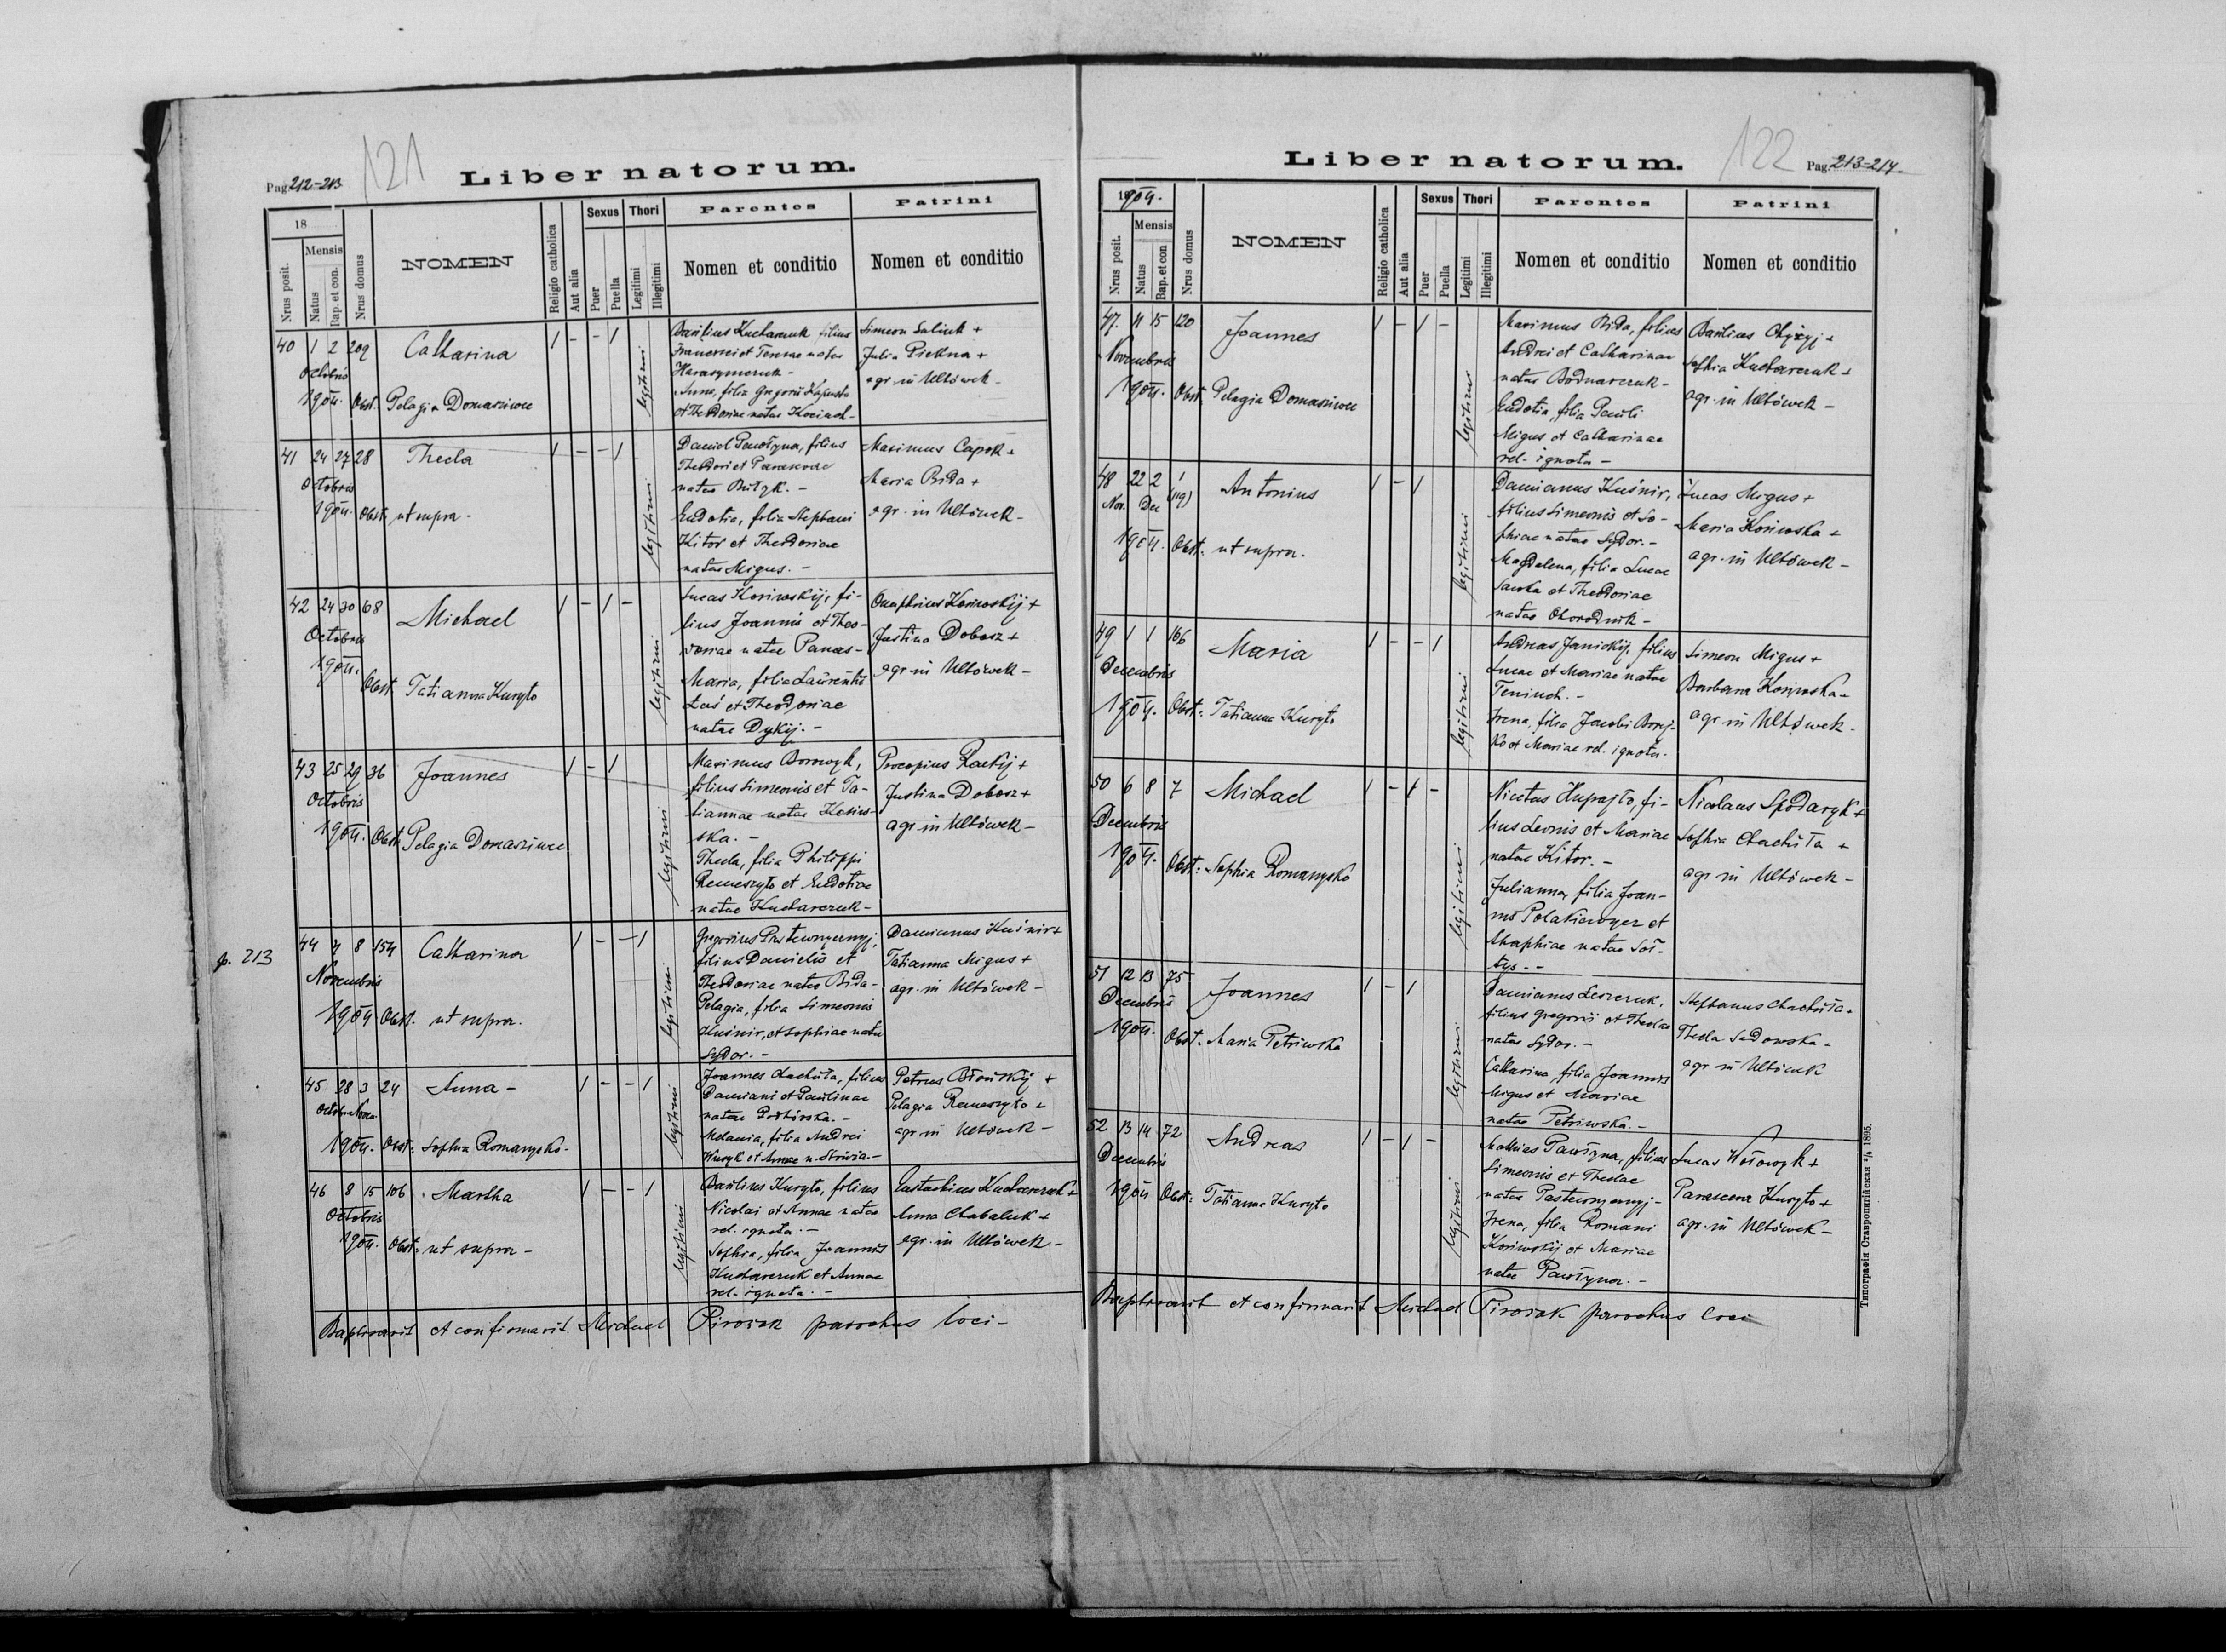 Pag. 212=213
121
Liber natorum.
18
Nrus posit.
Mensis
Natus
Bap. et con.
Nrus domus
NOMEN
Religio catholica
Aut alia
Sexus
Puer
Puella
Thori
Legitimi
Illegitimi
Parentes
Nomen et conditio
Patrini
Nomen et conditio
40 1 2 209 Catharina 1 - - 1 legitimi
Octobris
1904. Obst. Pelagia Domasziwce
Basilius Kucharczuk filius
et Annae natae
Harasymczuk -
Anna, filia Gregorii Kapusta
et Theodoriae natae
Simeon Saliuk +
Julia Piekna +
agr. in Ułtówek -
41 24 27 28 Thecla 1 - - 1 legitimi
Octobris
1904. Obst. ut supra -
Daniel Pawłyna, filius
Theodori et Parascevae
natae Bułyk. -
Eudotia, filia Stephani
Kitor et Theodoriae
natae Migus. -
Maximus Capok +
Maria Bida +
agr. in Ułtówek -
42 24 30 68 Michael 1 - 1 - legitimi
Octobris
1904.
Obst Tatianna Kuryło
Lucas Kosiwskij, fi-
lius Joannis et Theo-
doriae natae Panas -
Maria, filia Laurentii
Łuś et Theodoriae
natae Dykij. -
Onuphrius Kosiwskij +
Justina Dobosz +
agr in Ułtówek -
43 25 29 36 Joannes 1 - 1 legitimi
Octobris
1904. Obst Pelagia Domasziwce
Maximus Borowyk,
filius Simeonis et Ta-
tiannae natae Kosiw-
ska. -
Thecla, filia Philippi
Remeszyło et Eudotiae
natae Kucharczuk -
Procopius Rackij +
Justina Dobosz +
agr in Ułtówek -
p. 213
44 4 8 154 Catharina 1 - - 1 legitimi
Novembris
1904 Obst. ut supra.
Gregorius Pastewnyczyj,
filius Danielis et
Theodoriae natae Bida -
Pelagia, filia Simeonis
Kuśnir, et Sophiae natae
Sydor. -
Damianus Kuśnir +
Tatianna Migus +
agr. in Ułtówek -
45 28 3 24 Anna - 1 - - 1 legitimi
Octobr Novem
1904. Obst: Sophia Romanysko -
Joannes Chachuła, filius
Damiani et Paulinae
natae -
Melania, filia Andrei
Kuryk et Annae n. -
Petrus Błońskij +
Pelagia Remeszyło +
agr in Ułtówek -
46 8 15 106 Martha 1 - - 1 legitimi
Octobris
1904. Obst: ut supra -
Basilius Kuryło, filius
Nicolai et Annae natae
rel. ignota. -
Sophia, filia Joannis
Kucharczuk et Annae
rel. ignota. -
Eustachius Kucharczuk +
Anna Chabaluk +
agr. in Ułtówek -
Baptisavit et confirmavit Michael Pirożak parochus loci -
Liber natorum.
122
Pag. 213=214.
1904.
Nrus posit.
Mensis
Natus
Bap. et con
Nrus domus
NOMEN
Religio catholica
Aut alia
Sexus
Puer
Puella
Thori
Legitimi
Illegitimi
Parentes
Nomen et conditio
Patrini
Nomen et conditio
47. 11 15 120 Joannes 1 - 1 - legitimi
Novembris
1904. Obst. Pelagia Domasziwce
Maximus Bida, filius
Andrei et Catharinae
natae Bodnarczuk -
Eudotia, filia Pauli
Migus et Catharinae
rel. ignota -
Basilius Chyżyj +
Sophia Kucharczuk +
agr. in Ułtówek -
48 22 2 1 (119) Antonius 1 - 1 legitimi
Nov. Dec
1904. Obst. ut supra.
Damianus Kuśnir,
filius Simeonis et So-
phiae natae Sydor. -
Magdalena, filia Lucae
Sawka et Theodoriae
natae Ohorodnik -
Lucas Migus +
Maria Kosiwska +
agr. in Ułtówek -
49 1 1 166 Maria 1 - - 1 legitimi
Decembris
1904. Obst: Tatianna Kuryło
Andreas Janickij, filius
Lucae et Mariae natae
Teniuch. -
Irena, filia Jacobi Bonj-
ko et Mariae rel. ignota -
Simeon Migus +
Barbara Kosiwska -
agr in Ułtówek -
50 6 8 7 Michael 1 - 1 - legitimi
Decembris
1904. Obst: Sophia Romanysko
Nicetas Hupajło, fi-
lius Leonis et Mariae
natae Kitor. -
Julianna, filia Joan-
nis Polakiewycz et
Agaphiae natae Soł-
tys. -
Nicolaus Spodaryk +
Sophia Chachuła +
agr in Ułtówek -
51 12 13 75 Joannes 1 - 1 legitimi
Decembris
1904. Obst. Maria Petriwska
Damianus Leszczuk,
filius Gregorii et Theclae
natae Sydor. -
Catharina, filia Joannis
Migus et Mariae
natae Petriwska. -
Stephanus Chachuła -
Thecla Sadowska -
agr in Ułtówek
52 13 14 72 Andreas 1 - 1 - legitimi
Decembris
1904 Obst: Tatianna Kuryło
Mathias Pawłyna, filius
Simeonis et Theclae
natae Pastewnyczyj -
Irena, filia Romani
Kosiwskij et Mariae
natae Pawłyna. -
Lucas Wołowyk +
Parascewa Kuryło +
agr. in Ułtówek -
Baptisavit et confirmavit Michael Pirożak parochus loci
Типографія Ставропигійская 1895.